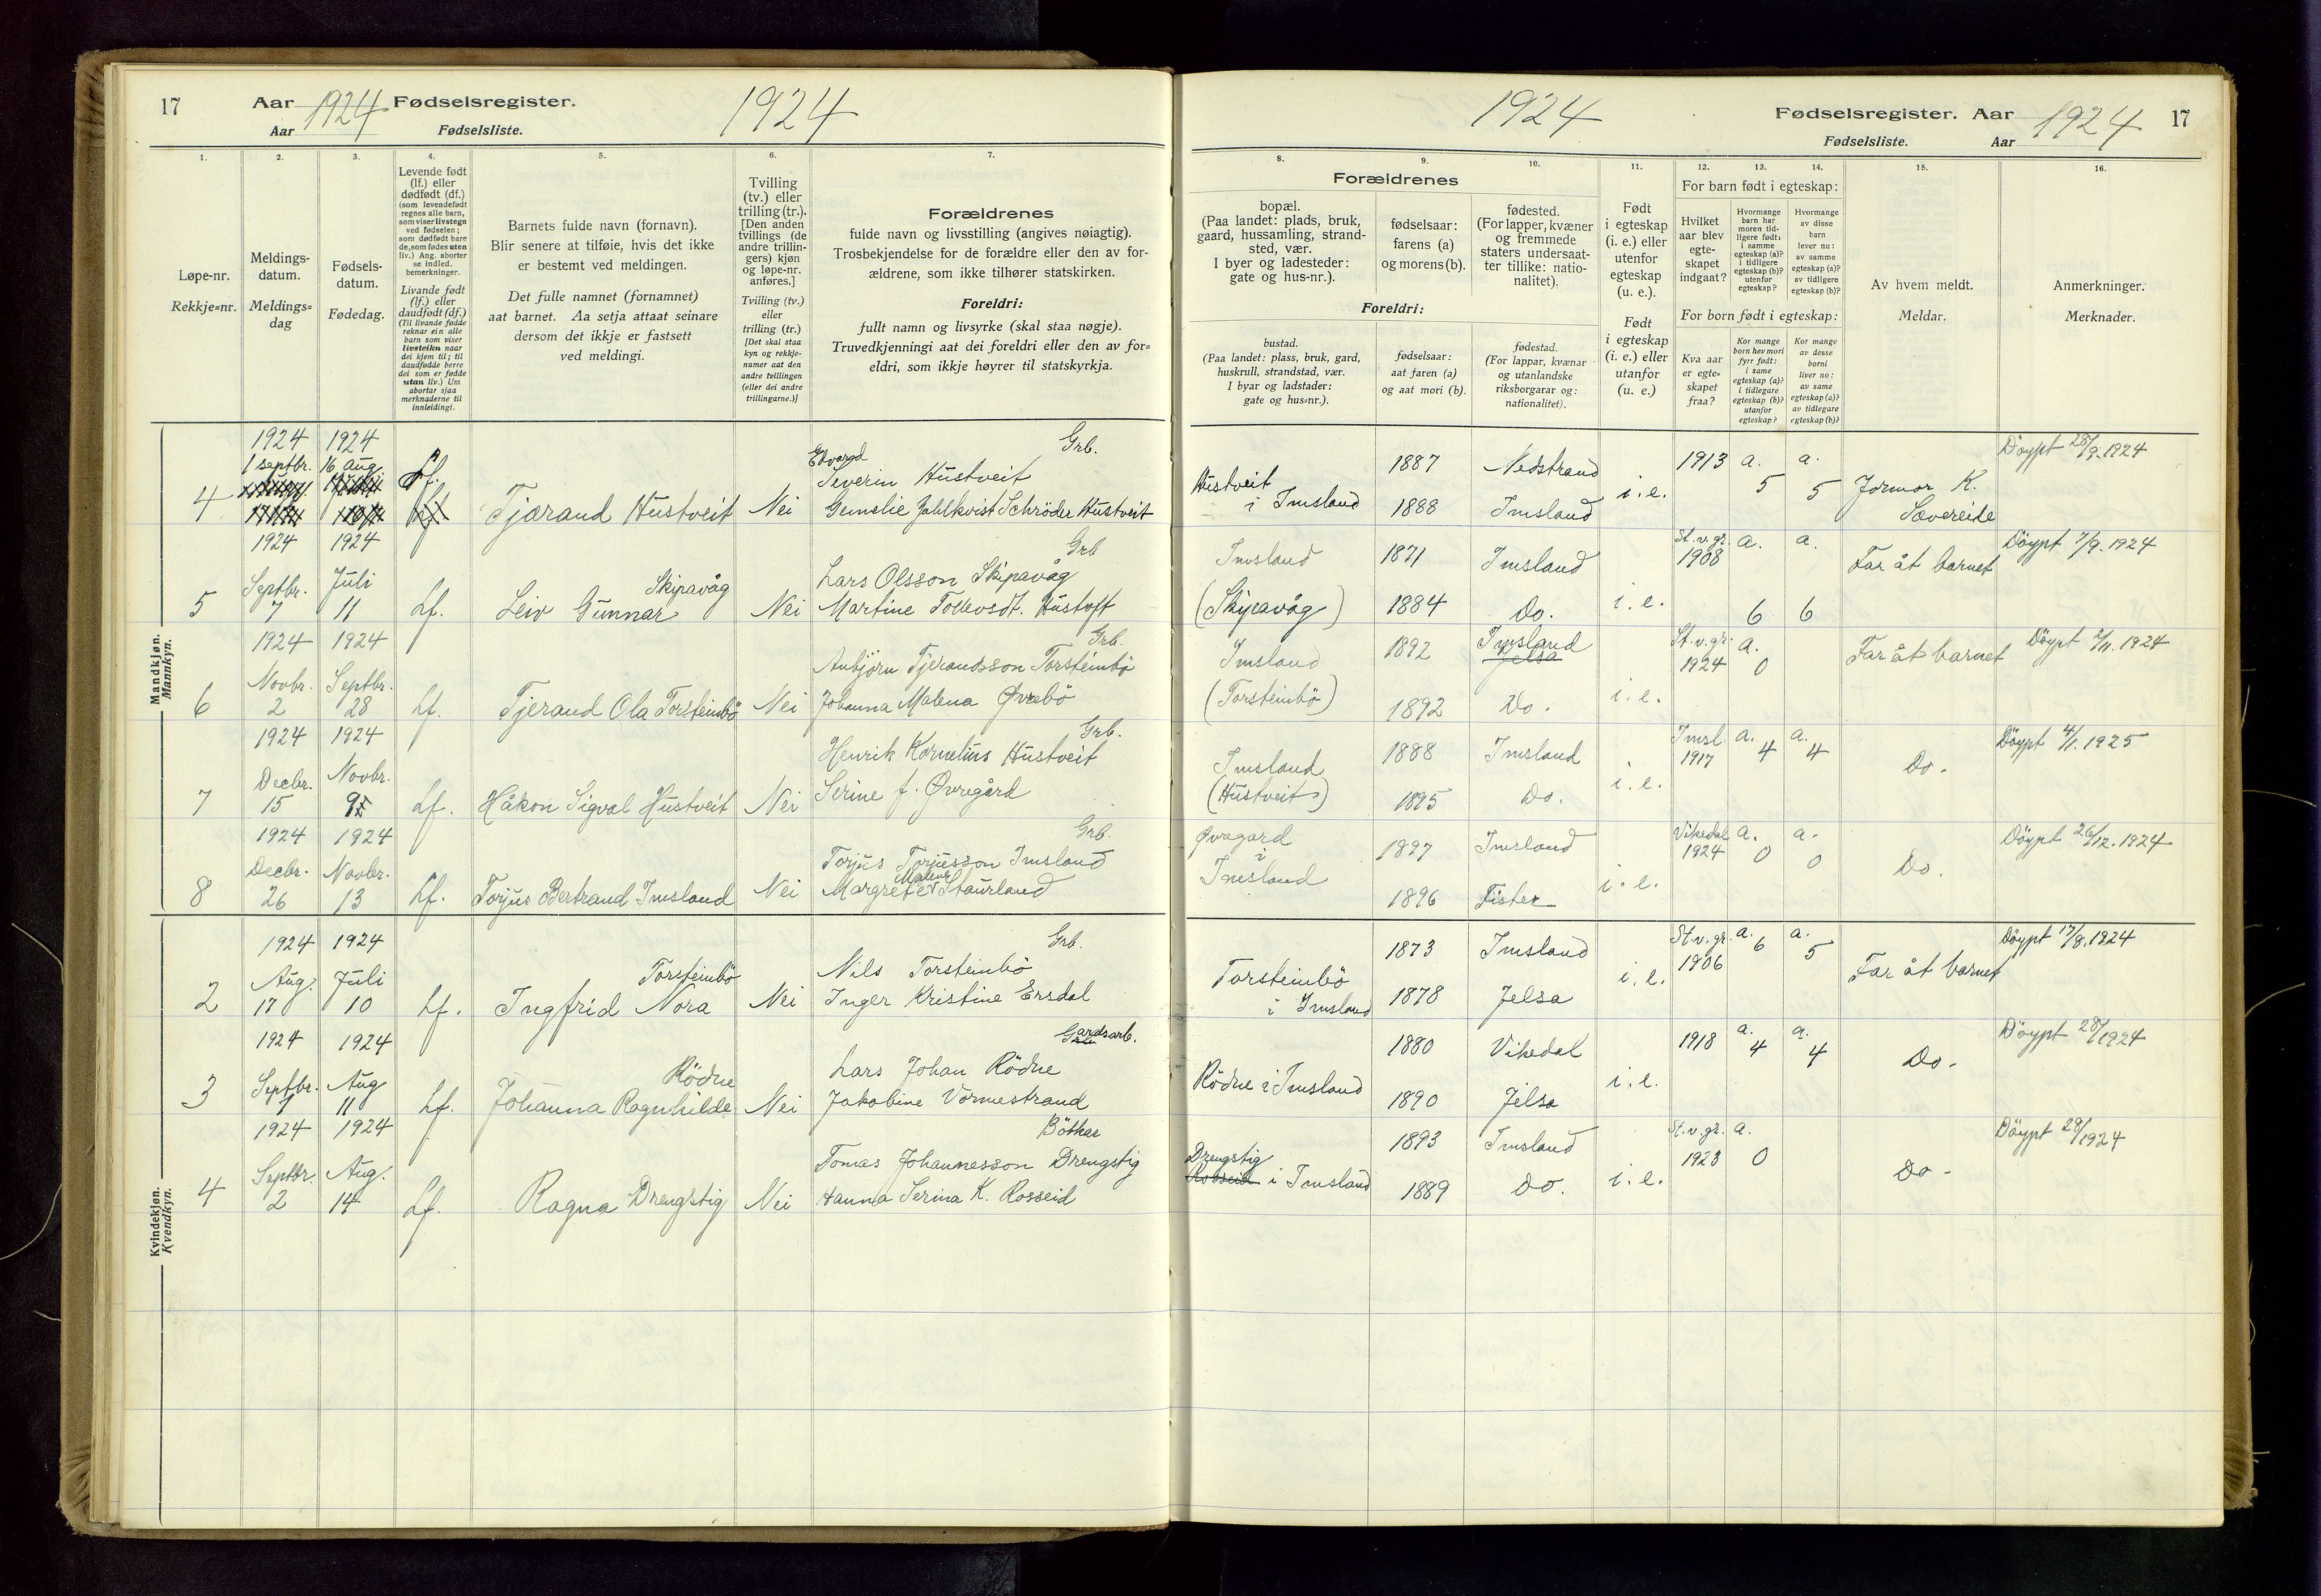 17 Aar 1924 Fødselsregister. 1924
Aar Fødselsliste.
1. 2. 3. 4. 5. 6. 7.
Løpe-nr.
Rekkje=nr.
Meldings-
datum.
Meldings=
dag
Fødsels-
datum.
Fødedag.
Levende født
(lf.) eller
dødfødt (df.)
(som levendefødt
regnes alle barn,
som viser livstegn
ved fødselen;
som dødfødt bare
de, som fødes uten
liv.) Ang. aborter
se indled.
bemerkninger.
Livande født
(lf.) eller
daudfødt (df.)
(Til livande fødde
reknar ein alle
barn som viser
livsteikn naar
dei kjem til; til
daudfødde berre
dei som er fødde
utan liv.) Um
abortar sjaa
merknaderne til
innleidingi.
Barnets fulde navn (fornavn).
Blir senere at tilføie, hvis det ikke
er bestemt ved meldingen.
Det fulle namnet (fornamnet)
aat barnet. Aa setja attaat seinare
dersom det ikkje er fastsett
ved meldingi.
Tvilling
(tv.) eller
trilling (tr.).
[Den anden
tvillings (de
andre trillin-
gers) kjøn
og løpe-nr.
anføres.]
Tvilling (tv.)
eller
trilling (tr.)
[Det skal staa
kyn og rekkje-
numer aat den
andre tvillingen
(eller dei andre
trillingarne.)]
Forældrenes
fulde navn og livsstilling (angives nøiagtig).
Trosbekjendelse for de forældre eller den av for-
ældrene, som ikke tilhører statskirken.
Foreldri:
fullt namn og livsyrke (skal staa nøgje).
Truvedkjenningi aat dei foreldri eller den av for=
eldri, som ikkje høyrer til statskyrkja.
Mandkjøn.
Mannkyn.
1924 1924 Grb.
1 septbr. 16 aug. Lf. Edvard
Severin Hustveit
4 Tjærand Hustveit Nei Gemelie Jahlkvist Schröder Hustveit
1924 1924 Grb
Septbr. Juli Skipavåg Lars Olsson Skipavåg
5 7 11 Lf. Leiv Gunnar Nei Martine Tollevsdt. Hustoft
1924 1924 Grb.
Novbr. Septbr. Anbjörn Tjerandsson Torsteinbö
6 2 28 Lf. Tjerand Ola Torsteinbö Nei Johanna Malena Øvrebö
1924 1924 Grb.
Decbr. Novbr. Henrik Kornelius Hustveit
7 15 9 Lf. Håkon Sigval Hustveit Nei Serine f. Øvregård
1924 1924 Grb.
Decbr. Novbr. Torjus Torjusson Imsland
8 26 13 Lf. Torjus Bertrand Imsland Nei Margrete Staurland
Kvindekjøn.
Kvendkyn.
1924 1924 Grb.
Aug. Juli Torsteinbö Nils Torsteinbö
2 17 10 Lf. Ingfrid Nora Nei Inger Kristine Ersdal
1924 1924 Gardsarb.
Septbr. Aug Rödne Lars Johan Rödne
3 7 11 Lf. Johanna Ragnhilde Nei Jakobine Vormestrand
1924 1924 Böthar
Septbr. Aug. Tomas Johannesson Drengstig
4 2 14 Lf. Ragna Drengstig Nei Hanna Serina K. Rosseid
1924 Fødselsregister. Aar 1924 17
Fødselsliste. Aar
8. 9. 10. 11. 12. 13. 14. 15. 16.
Forældrenes
bopæl.
(Paa landet: plads, bruk,
gaard, hussamling, strand-
sted, vær.
I byer og ladesteder:
gate og hus-nr.).
fødselsaar:
farens (a)
og morens (b).
fødested.
(For lapper, kvæner
og fremmede
staters undersaat-
ter tillike: natio-
nalitet).
Foreldri:
bustad.
(Paa landet: plass, bruk, gard,
huskrull, strandstad, vær.
I byar og ladstader:
gate og hus=nr.).
fødselsaar:
aat faren (a)
og aat mori (b).
fødestad.
(For lappar, kvænar
og utanlandske
riksborgarar og:
nationalitet).
Født
i egteskap
(i. e.) eller
utenfor
egteskap
(u. e.).
Født
i egteskap
(i. e.) eller
utanfor
(u. e.)
For barn født i egteskap:
Hvilket
aar blev
egte-
skapet
indgaat?
Hvormange
barn har
moren tid-
ligere født:
i samme
egteskap (a)?
i tidligere
egteskap (b)?
utenfor
egteskap?
Hvormange
av disse
barn
lever nu:
av samme
egteskap (a)?
av tidligere
egteskap (b)?
For born født i egteskap:
Kva aar
er egte=
skapet
fraa?
Kor mange
born hev mori
fyrr født:
i same
egteskap (a)?
i tidlegare
egteskap (b)?
utanfor
egteskap?
Kor mange
av desse
borni
liver no:
av same
egteskap (a)?
av tidlegare
egteskap (b)?
Av hvem meldt.
Meldar.
Anmerkninger.
Merknader.
Hustveit 1887 Nedstrand 1913 a. a. Döypt 28/9. 1924
i Imsland 1888 Imsland i. e. 5 5 Jormor K.
Sævereide
Imsland 1871 Imsland St. v. gr. a. a. Far åt barnet Döypt 7/9. 1924
1908
(Skipavåg) 1884 Do. i. e. 6 6
Imsland 1892 Imsland St. v. gr. a. Far åt barnet Döypt 2/11. 1924
Jelsa 1924 0
(Torsteinbö) 1892 Do. i. e.
Imsland 1888 Imsland Imsl. a. 4 a. 4 Do. Döypt 4/1. 1925
1917
(Hustveit) 1895 Do. i. e.
Øvregard 1897 Imsland Vikedal a. a. Döypt 26/12. 1924
i 1924 0 0
Imsland 1896 Fister i. e. Do.
1873 Imsland St. v. gr. a. 6 a. 5 Döypt 17/8. 1924
Torsteinbö 1906 Far åt barnet
i Imsland 1878 Jelsa i. e.
1880 Vikedal 1918 a. 4 a. 4 Do. Döypt 28/1924
Rödne i Imsland 1890 Jelsa i. e.
1893 Imsland St. v. gr. a. Döypt 28/1924
Drengstig 1923 0 Do -
Rosseid i Imsland 1889 Do. i. e.